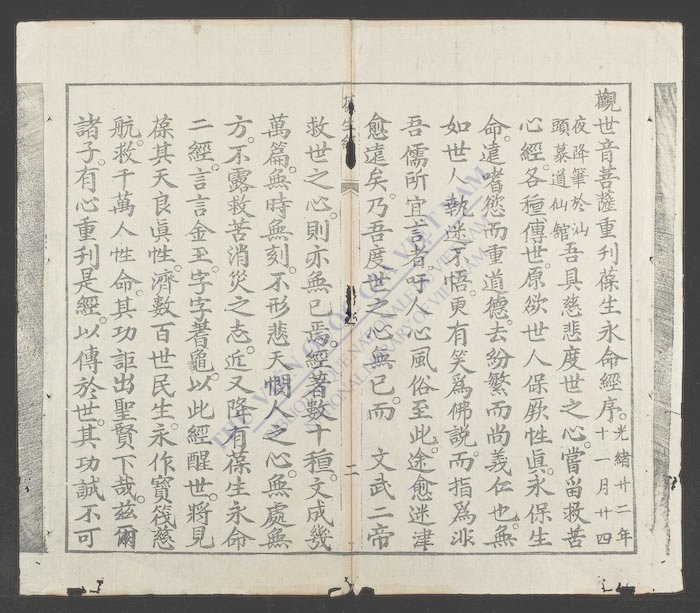 觀世音菩薩重刊葆生永命經序。光緒廿二年十一月廿四
夜降筆於汕頭慕道仙館 吾具慈悲度世之心。當留救苦
心經。各種傳世。原欲世人保厥性眞。永保生
命。遠嗜慾而重道德。去紛繁而尚義仁也。無
如世人執迷不悟。更有笑爲佛說。而指爲非
吾儒所宜言者。吁人心風俗至此。途愈迷津
愈遠矣。乃吾度世之心無已。而 文武二帝
葆生經
二
救世之心。則亦無已焉。經著數十種。文成幾
萬篇。無時無刻。不形悲天憫人之心。無處無
方。不露救苦消災之志。近又降有葆生永命
二經。言言金玉。字字蓍龜。以此經醒世。將見
葆其天良眞性。濟數百世民生。永作寶筏慈
航。救千萬人性命。其功詎出聖賢下哉。茲爾
諸子。有心重刊是經。以傳於世。其功誠不可
THƯ VIỆN QUỐC GIA VIỆT NAM
BIBLIOTHEQUE NATIONALE DU VIETNAM
NATIONAL LIBRARY OF VIETNAM